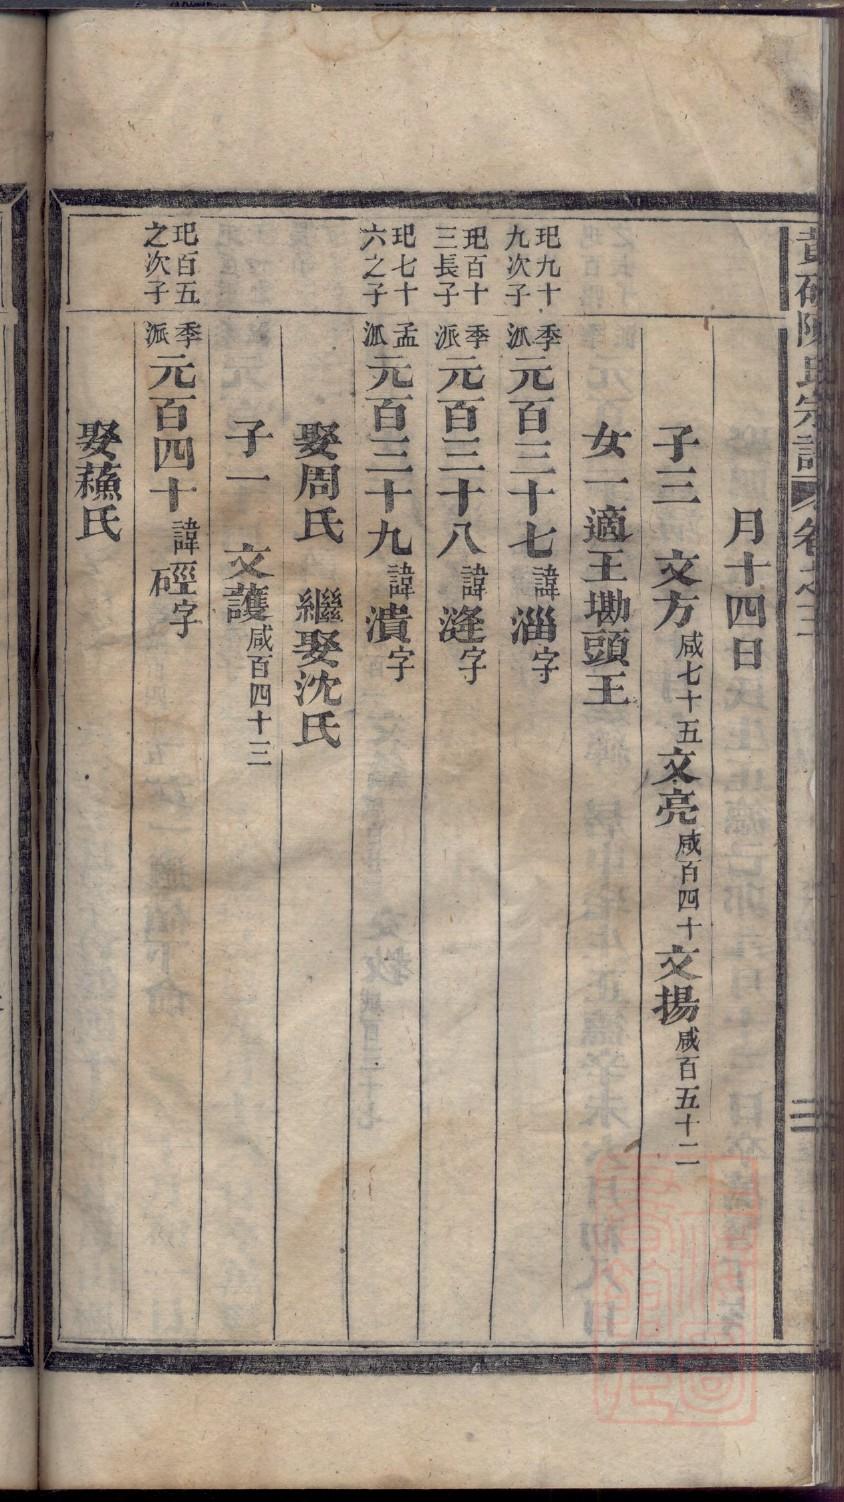 陳氏宗譜 卷之三
月十四日
子三 文方咸七十五文亮咸百四十文揚咸百五十二
女一適王墈頭王
玘九十九次子 季派元百三十七諱淄字
玘百十三長子 季派元百三十八諱漨字
玘七十六之子 孟派元百三十九諱潰字
娶周氏 繼娶沈氏
子一 文護咸百四十三
玘百五之次子 季派元百四十諱硜字
娶蘓氏